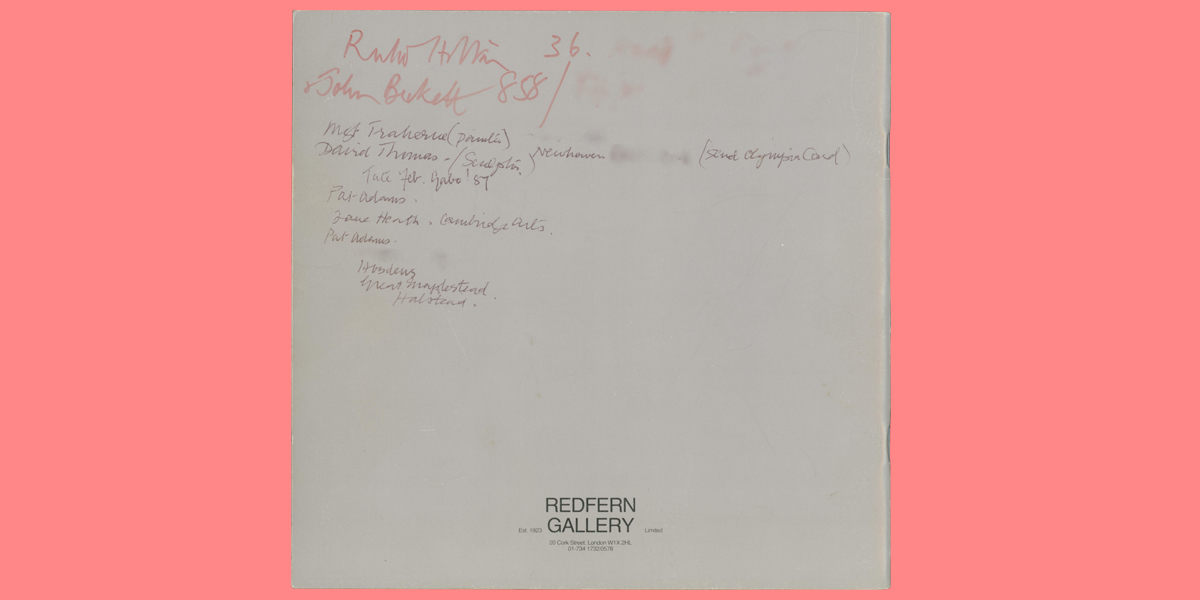 36.
John Beckett 858/
Meg Traherne (painter)
David Thomas - (Sculptor) Newhaven (send Olympia Card)
Tate Feb. Gabo '87
Pat Adams.
Jane Heath. Cambridge Arts.
Pat Adams.
Great Maplestead
Halstead.
REDFERN
Est. 1923 GALLERY Limited
20 Cork Street London W1X 2HL
01-734 1732/0578